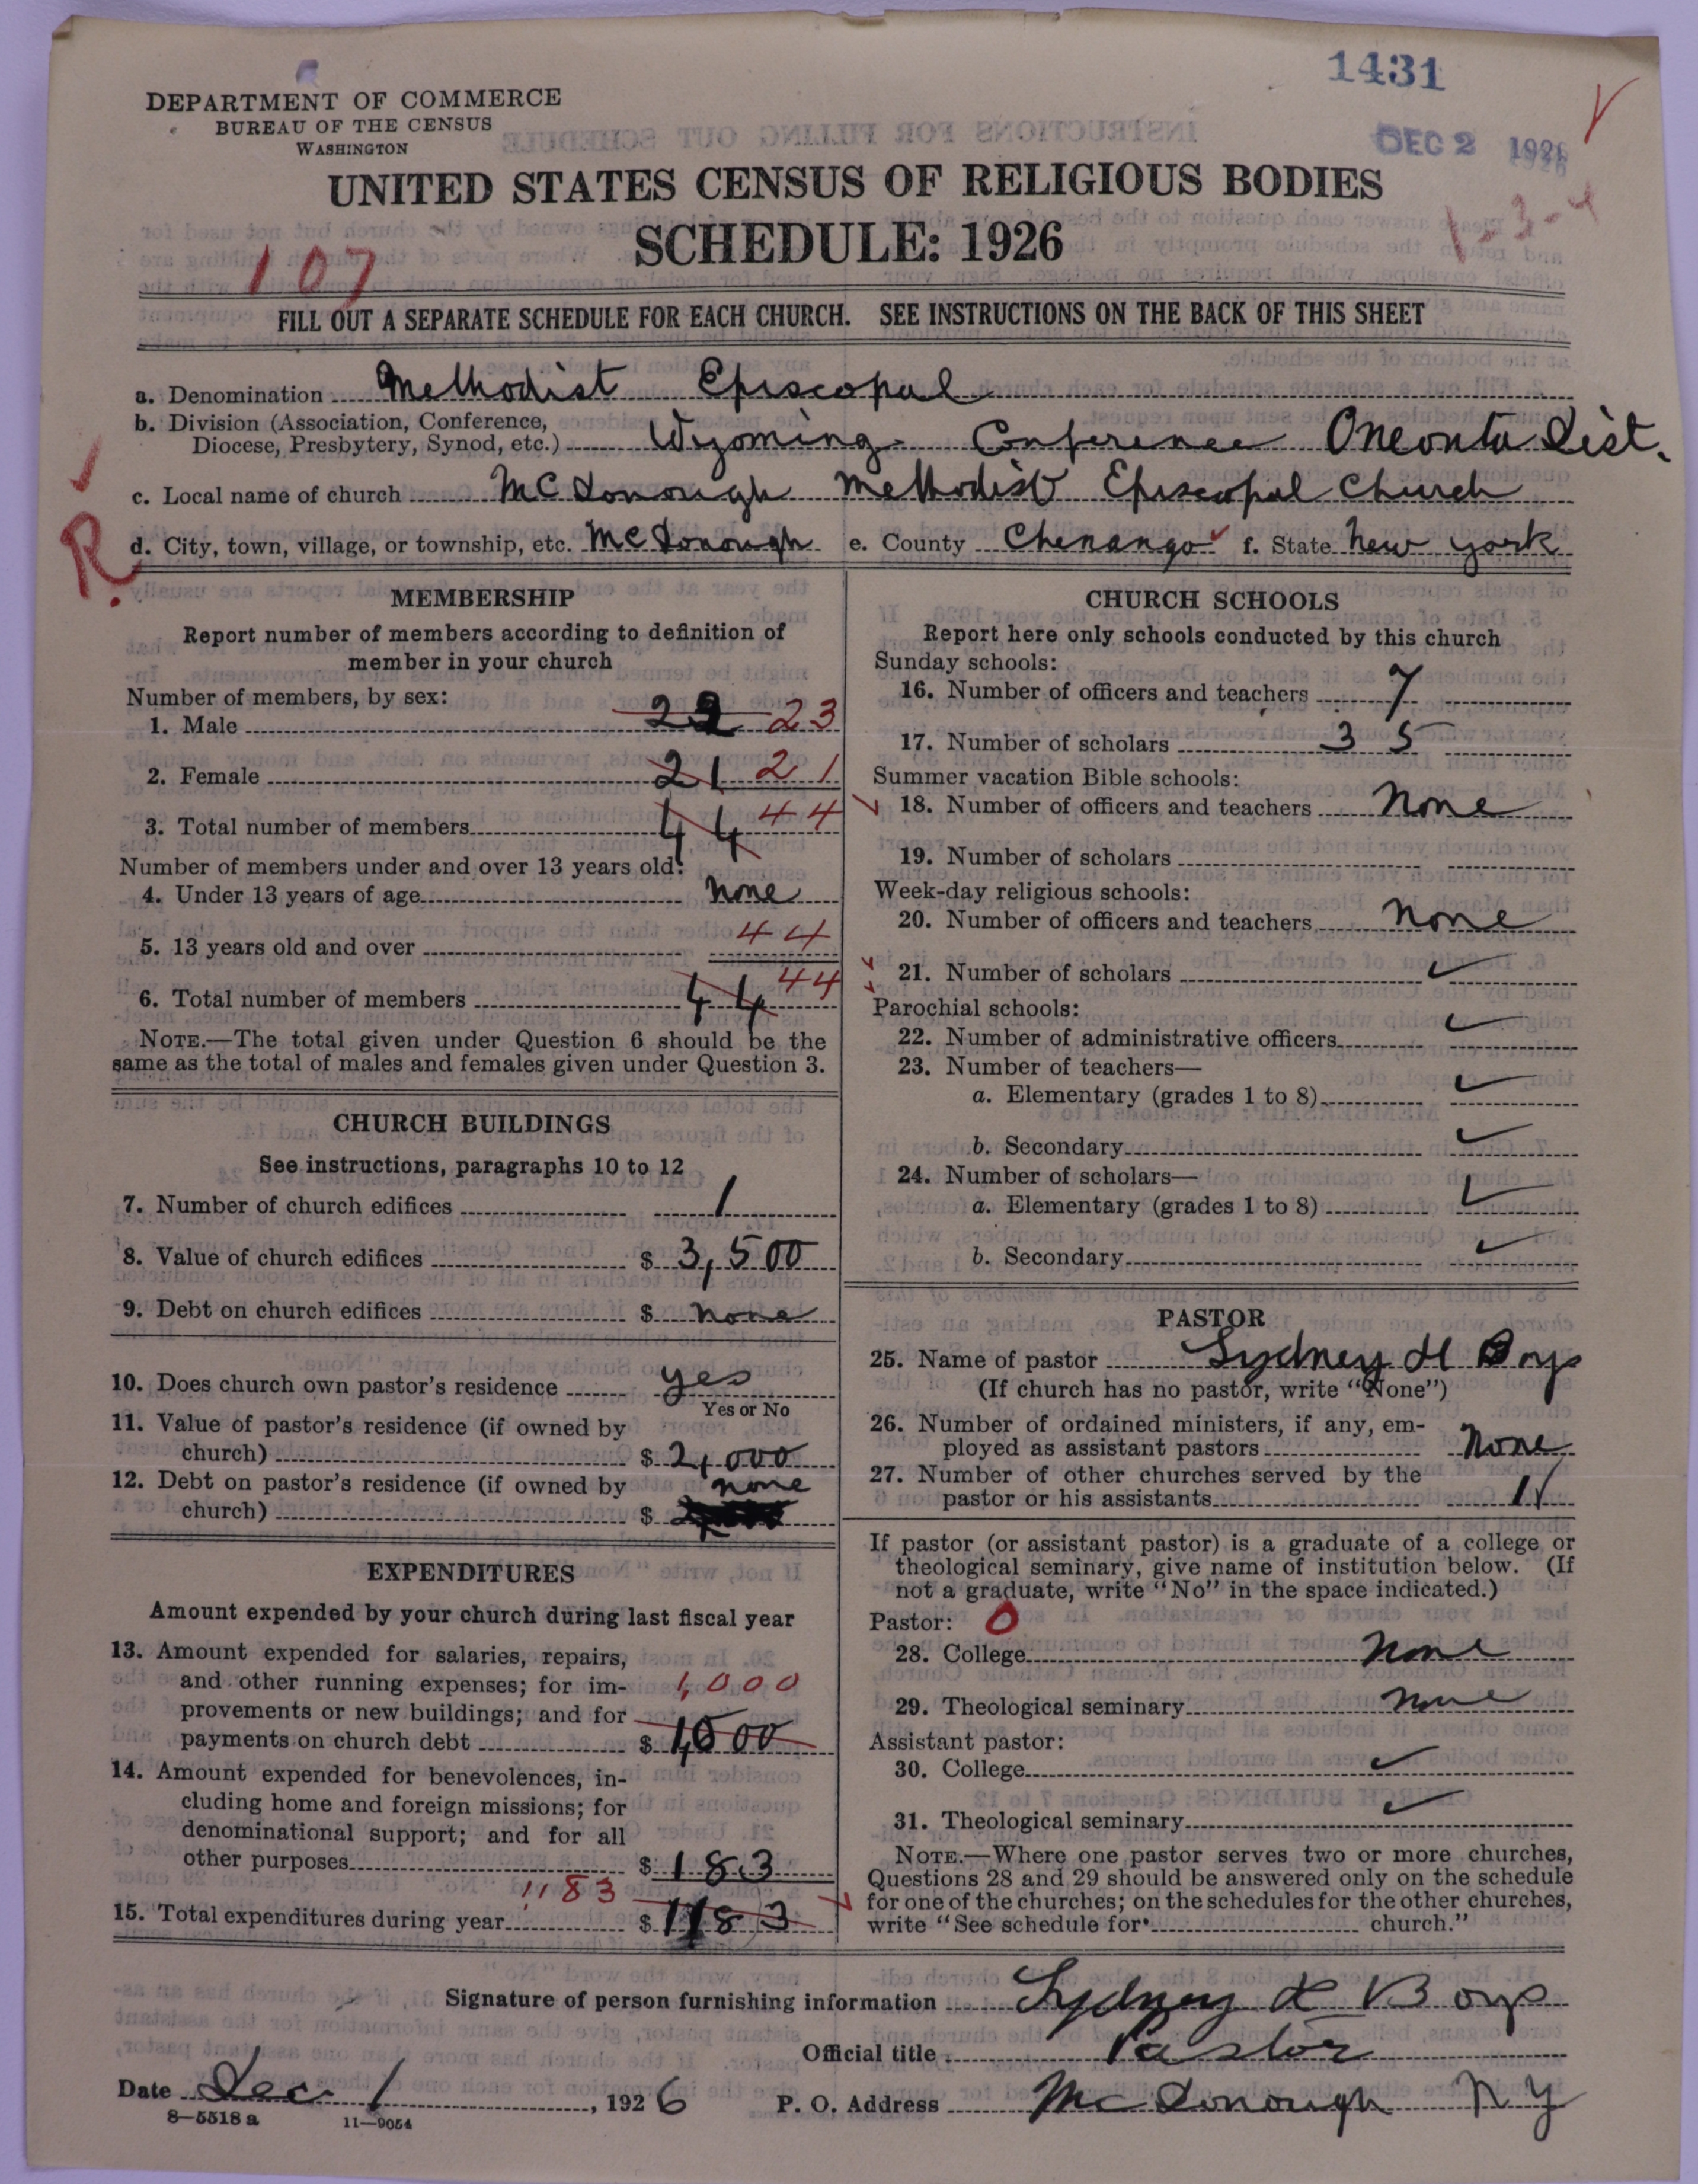 1431
DEPARTMENT OF COMMERCE
BUREAU OF THE CENSUS
WASHINGTON
DEC 2 1926
UNITED STATES CENSUS OF RELIGIOUS BODIES
SCHEDULE: 1926
1-3-4
107
FILL OUT A SEPARATE SCHEDULE FOR EACH CHURCH. SEE INSTRUCTIONS ON THE BACK OF THIS SHEET
a. Denomination Methodist Episcopal
b. Division (Association, Conference,
Diocese, Presbytery, Synod, etc.) Wyoming Conference Oneonta Dist.
c. Local name of church McDonough Methodist Episcopal Church
R.
d. City, town, village, or township, etc. McDonough e. County Chenango f. State New York
MEMBERSHIP
Report number of members according to definition of
member in your church
Number of members, by sex:
1. Male 23
2. Female 21 21
3. Total number of members 44 44
Number of members under and over 13 years old:
4. Under 13 years of age none
5. 13 years old and over 44
6. Total number of members 44 44
NOTE.—The total given under Question 6 should be the
same as the total of males and females given under Question 3.
CHURCH BUILDINGS
See instructions, paragraphs 10 to 12
7. Number of church edifices 1
8. Value of church edifices $ 3,500
9. Debt on church edifices $ none
10. Does church own pastor's residence yes
Yes or No
11. Value of pastor's residence (if owned by
church) $ 2,000
12. Debt on pastor's residence (if owned by
none
church) $
EXPENDITURES
Amount expended by your church during last fiscal year
13. Amount expended for salaries, repairs,
and other running expenses; for im-
1,000
provements or new buildings; and for
payments on church debt $ 1,000
14. Amount expended for benevolences, in-
cluding home and foreign missions; for
denominational support; and for all
other purposes $ 183
1183
15. Total expenditures during year $ 1183
CHURCH SCHOOLS
Report here only schools conducted by this church
Sunday schools:
16. Number of officers and teachers 7
17. Number of scholars 35
Summer vacation Bible schools:
18. Number of officers and teachers None
19. Number of scholars
Week-day religious schools:
20. Number of officers and teachers None
21. Number of scholars
Parochial schools:
22. Number of administrative officers
23. Number of teachers—
a. Elementary (grades 1 to 8)
b. Secondary
24. Number of scholars—
a. Elementary (grades 1 to 8)
b. Secondary
PASTOR
25. Name of pastor Sydney H Boyo
(If church has no pastor, write "None")
26. Number of ordained ministers, if any, em-
ployed as assistant pastors None
27. Number of other churches served by the
pastor or his assistants 1
If pastor (or assistant pastor) is a graduate of a college or
theological seminary, give name of institution below. (If
not a graduate, write "No" in the space indicated.)
Pastor: 0
28. College None
29. Theological seminary None
Assistant pastor:
30. College
31. Theological seminary
NOTE.—Where one pastor serves two or more churches,
Questions 28 and 29 should be answered only on the schedule
for one of the churches; on the schedules for the other churches,
write "See schedule for church."
Signature of person furnishing information Sydney H Boyo
Official title Pastor
Date Dec. 1, 1926 P. O. Address McDonough N Y
8—5518 a 11—9054